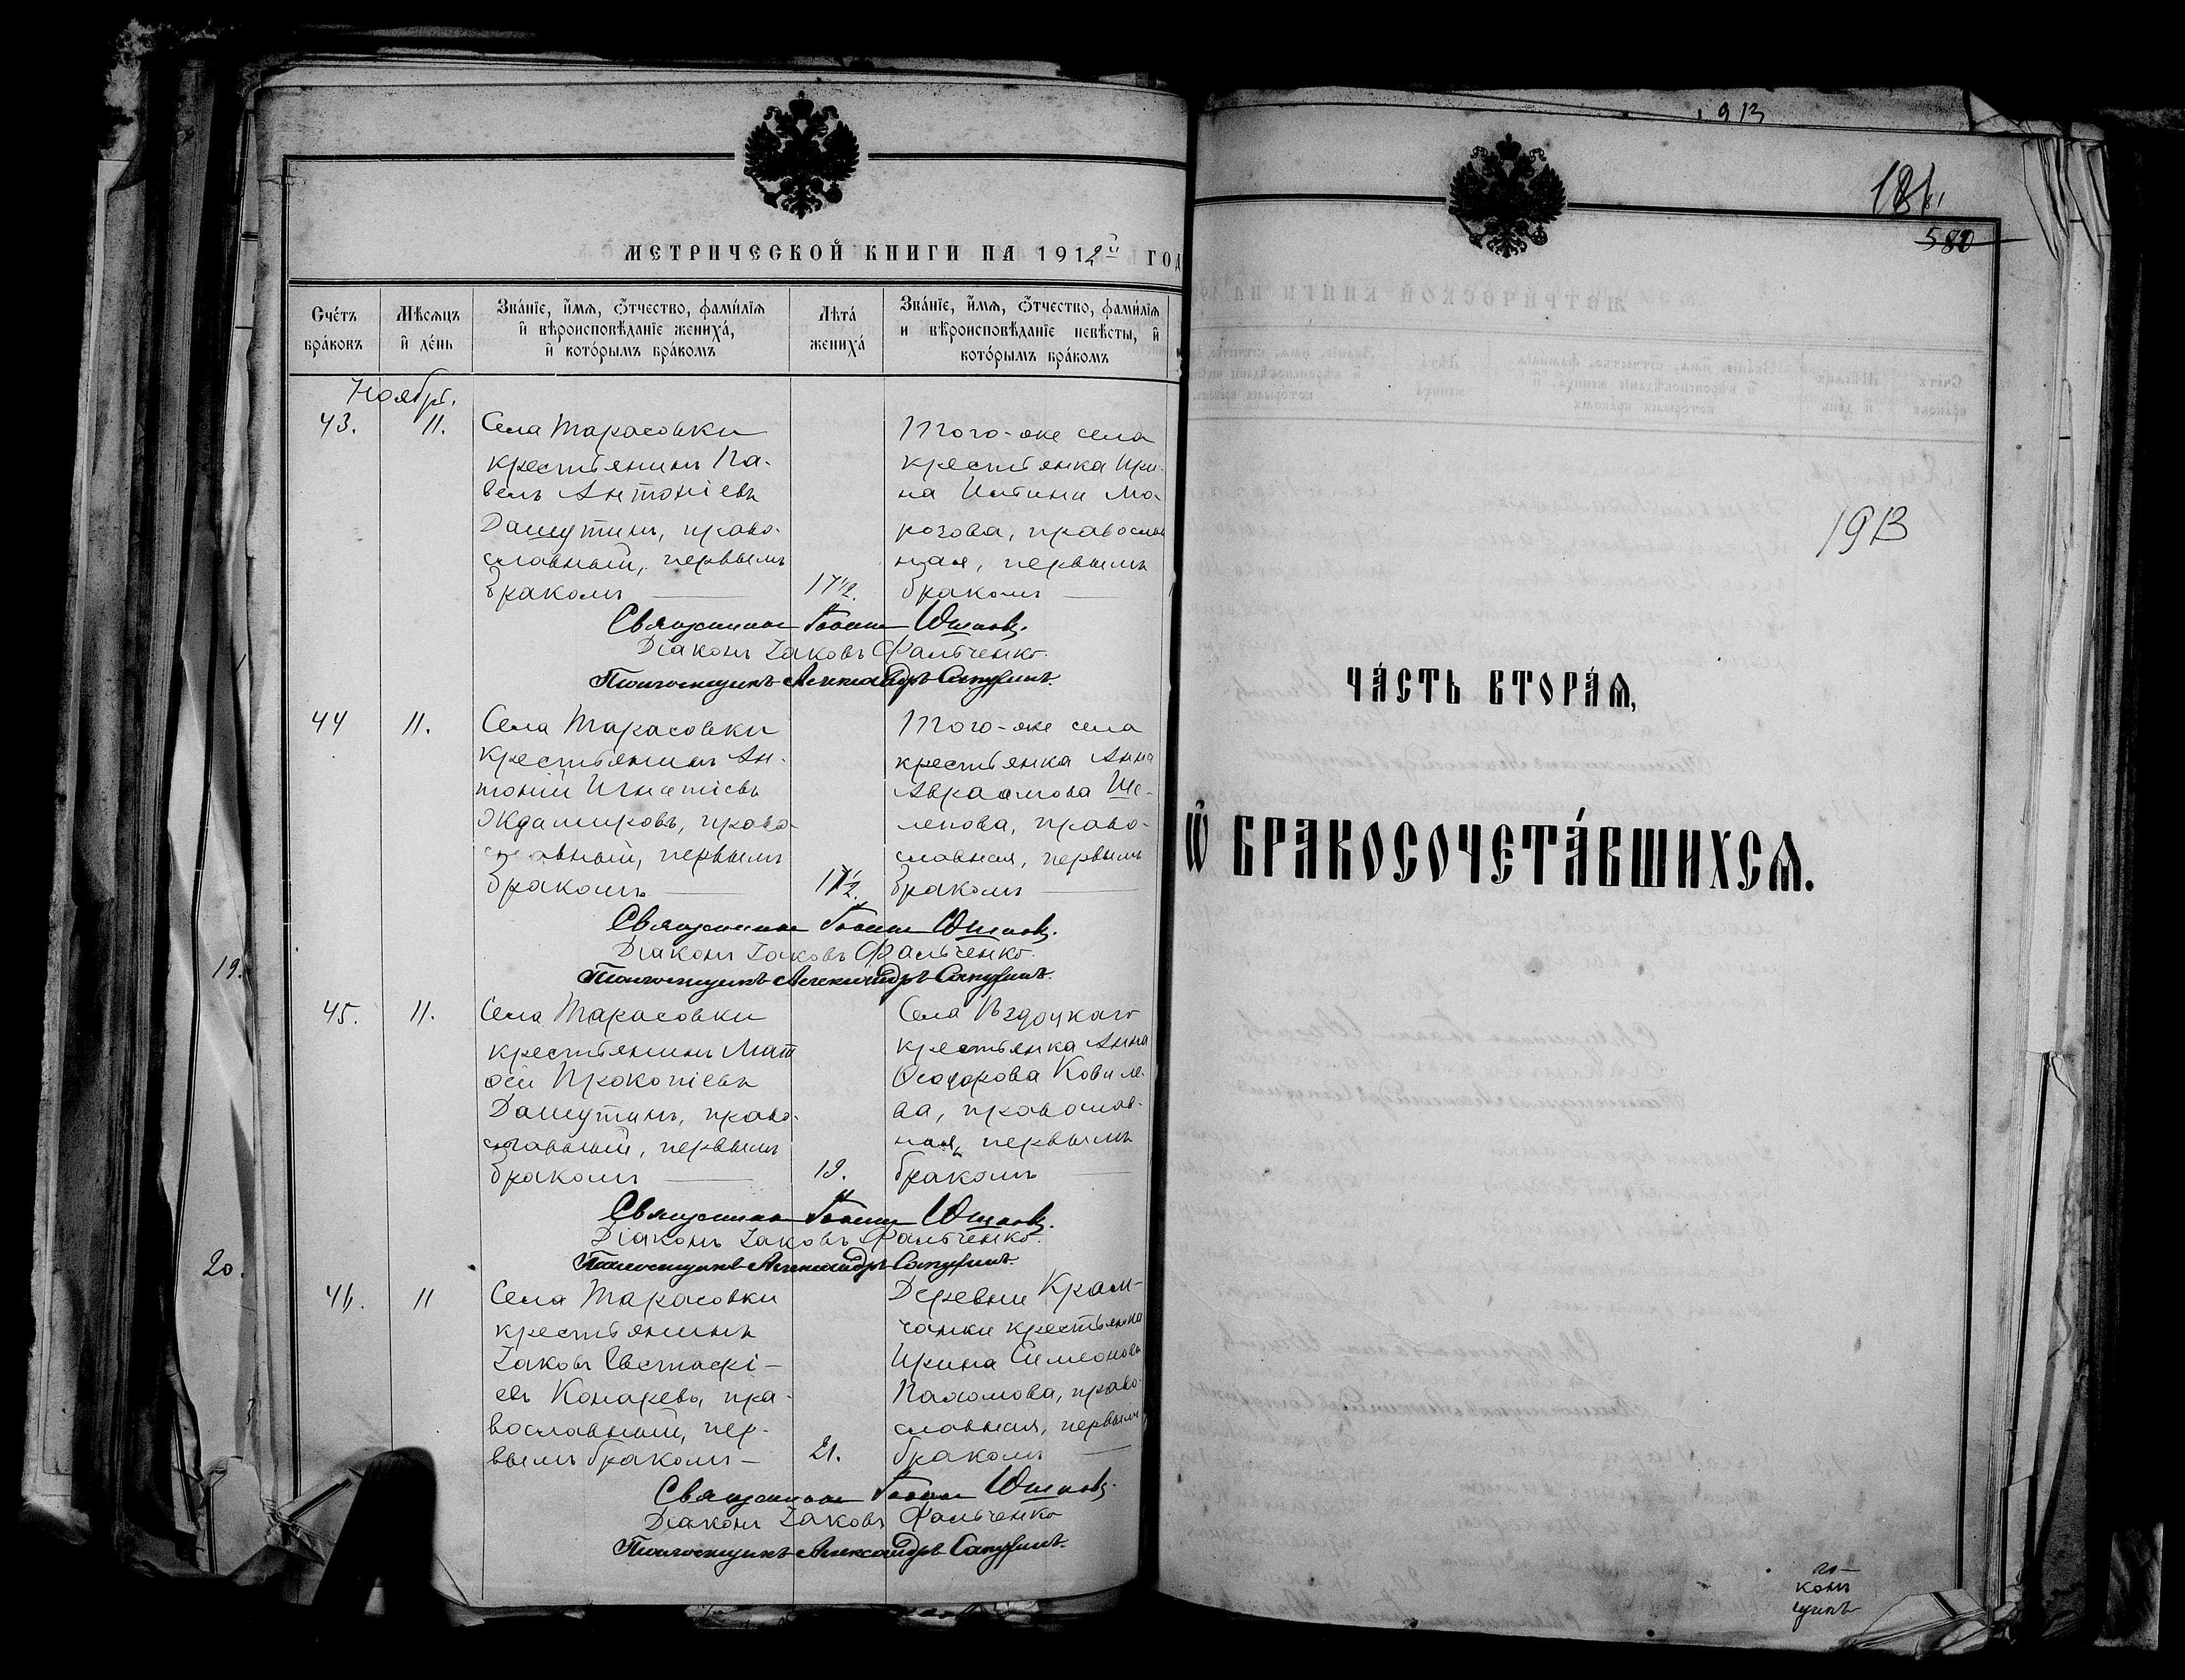 МЕТРИЧЕСКОЙ КНИГИ НА 1912й ГОД
Сче́тъ бра́ковъ
Мѣ́сяцъ и҆ де́нь
Зва́нїе, и҆́мѧ, ѻ҆́тчество, фами́лїѧ
и҆ вѣроисповѣ́данїе жениха́,
и҆ кото́рымъ бра́комъ
Лѣта́ жениха́
Зва́нїе, и҆́мѧ, ѻ҆́тчество, фами́лїѧ
и вѣроисповѣ́данїе невѣ́сты, и҆
кото́рымъ бра́комъ
Ноябрь.
43.
11.
Села Тарасовки
крестьянинъ Па-
велъ Антоніевъ
Дашутинъ, право-
славный, первымъ
бракомъ
17 1/2.
Того-же села
крестьянка Ири-
на Мо-
розова, православ
ная, первымъ
бракомъ
Священникъ Іоаннъ
Діаконъ Іаковъ Фальченко.
Псаломщикъ Александръ
44
11.
Села Тарасовки
крестьянинъ Ан-
тоній Игнатіевъ
Ждамировъ, право-
славный, первымъ
бракомъ
17 1/2.
Того-же села
крестьянка Анна
Авраамова Ше-
лепова, право-
славная, первымъ
бракомъ
Священникъ Іоаннъ
Діаконъ Іаковъ Фальченко.
Псаломщикъ Александръ
19.
45.
11.
Села Тарасовки
крестьянинъ Мат
ѳей Прокопіевъ
Дашутинъ, право-
славный, первымъ
бракомъ
19.
Села Вздоцкаго
крестьянка Анна
Ѳеодорова
ва, православ-
ная, первымъ
бракомъ
Священникъ Іоаннъ
Діаконъ Іаковъ Фальченко.
Псаломщикъ Александръ
20.
46.
11
Села Тарасовки
крестьянинъ
Іаковъ Евстаѳі-
евъ Конаревъ, пра-
вославный, пер-
вымъ бракомъ
21.
Деревни Крам-
чанки крестьянка
Ирина Симеонова
православная, первымъ
бракомъ
Священникъ Іоаннъ
Діаконъ Іаковъ Фальченко
Псаломщикъ Александръ
1913
181
580
1913
ЧА́СТЬ ВТОРА́Ѧ,
Ѽ БРАКОСОЧЕТА́ВШИХСѦ.
конъ
щикъ